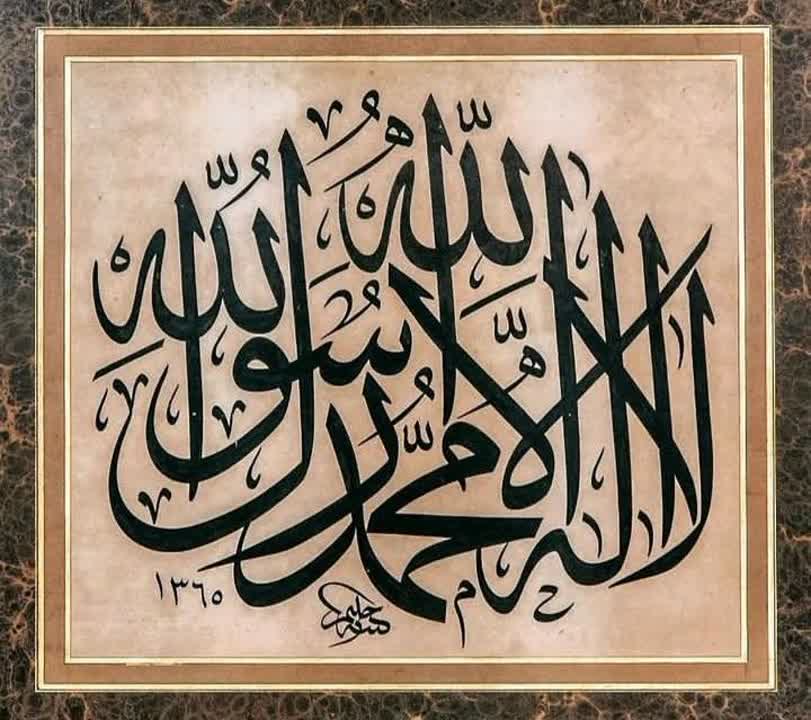 لا اله الا الله محمد رسول الله
١٣٦٥
كتبه حليم